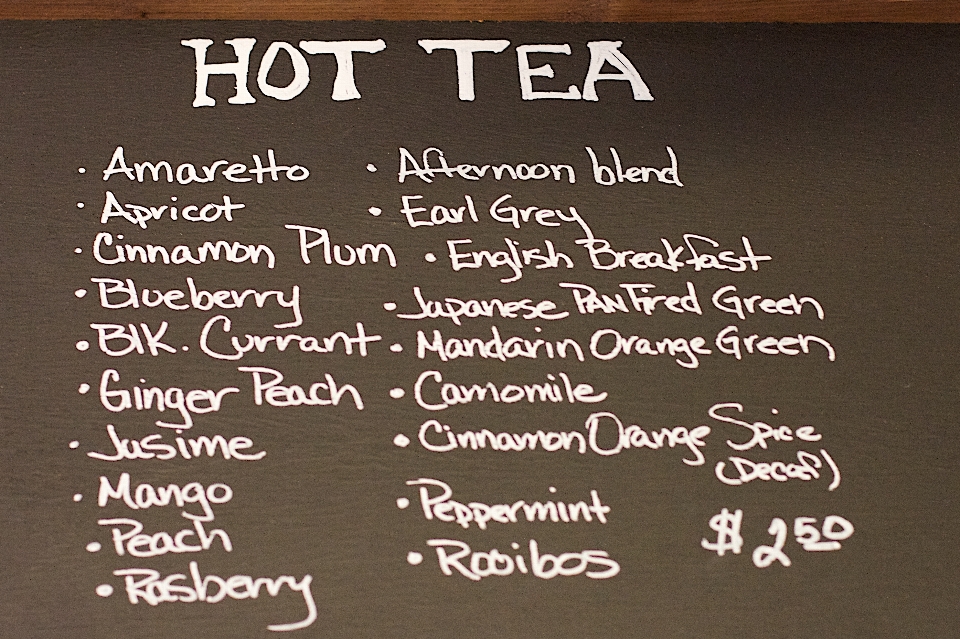 HOT TEA
· Amaretto
· Apricot
· Cinnamon Plum
· Blueberry
· Blk. Currant
· Ginger Peach
· Jusime
· Mango
· Peach
· Rasberry
· Afternoon blend
· Earl Grey
· English Breakfast
· Japanese PAN Fired Green
· Mandarin Orange Green
· Camomile
· Cinnamon Orange Spice
(Decaf)
· Peppermint
· Rooibos
$2.50